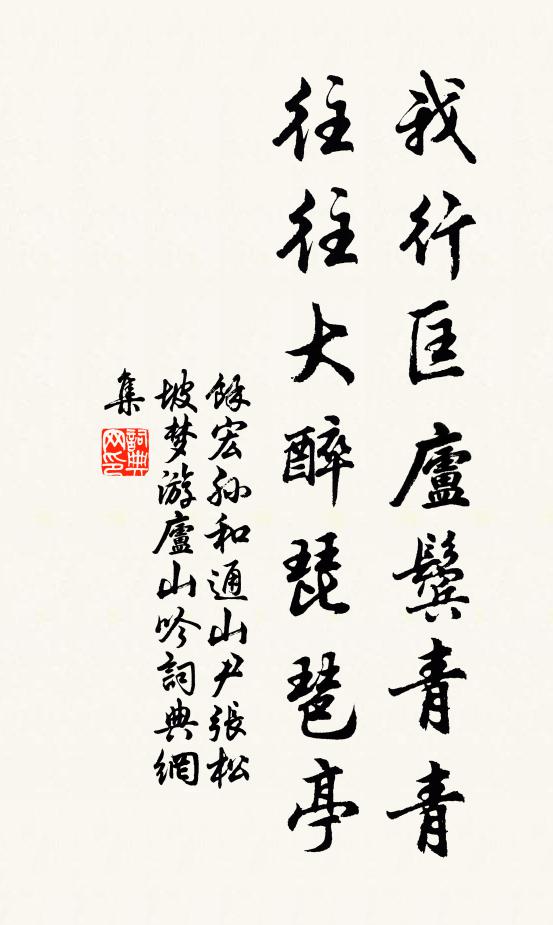 我行匡廬鬢青青
往往大醉琵琶亭
餘宏孫和通山尹張松
坡梦游廬山吟詞典網
集
詞典网印